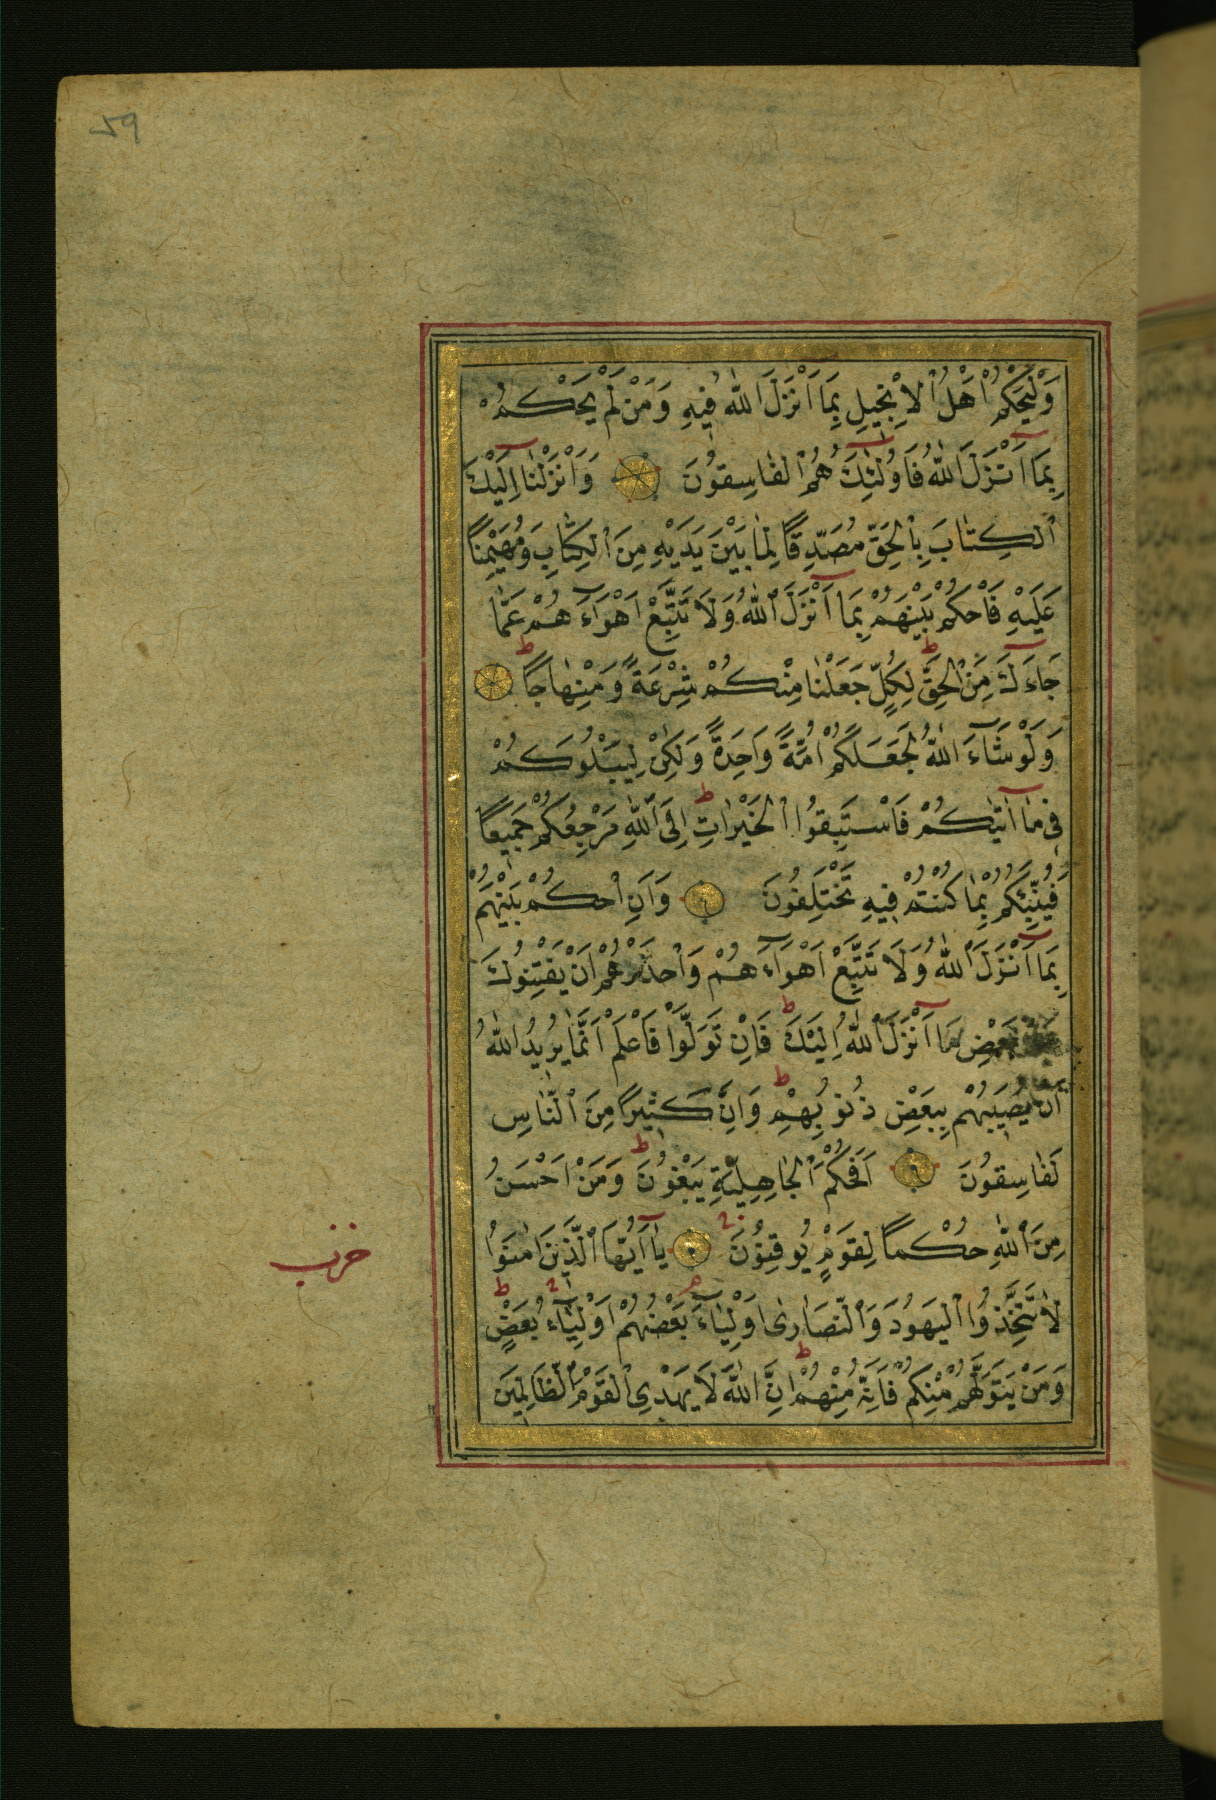 59
وَلْيَحْكُمْ اَهْلُ الْاِنْجِيلِ بِمَا اَنْزَلَ اللّٰهُ فِيهِ وَمَنْ لَمْ يَحْكُمْ
بِمَا اَنْزَلَ اللّٰهُ فَاُولٰئِكَ هُمُ الْفَاسِقُونَ وَاَنْزَلْنَا اِلَيْكَ
الْكِتَابَ بِالْحَقِّ مُصَدِّقًا لِمَا بَيْنَ يَدَيْهِ مِنَ الْكِتَابِ وَمُهَيْمِنًا
عَلَيْهِ فَاحْكُمْ بَيْنَهُمْ بِمَا اَنْزَلَ اللّٰهُ وَلَا تَتَّبِعْ اَهْوَاءَهُمْ عَمَّا
جَاءَكَ مِنَ الْحَقِّ ط لِكُلٍّ جَعَلْنَا مِنْكُمْ شِرْعَةً وَمِنْهَاجًا ط
وَلَوْ شَاءَ اللّٰهُ لَجَعَلَكُمْ اُمَّةً وَاحِدَةً وَلٰكِنْ لِيَبْلُوَكُمْ
فِى مَا اٰتٰيكُمْ فَاسْتَبِقُوا الْخَيْرَاتِ ط اِلَى اللّٰهِ مَرْجِعُكُمْ جَمِيعًا
فَيُنَبِّئُكُمْ بِمَا كُنْتُمْ فِيهِ تَخْتَلِفُونَ وَاَنِ احْكُمْ بَيْنَهُمْ
بِمَا اَنْزَلَ اللّٰهُ وَلَا تَتَّبِعْ اَهْوَاءَهُمْ وَاحْذَرْهُمْ اَنْ يَفْتِنُوكَ
بَعْضِ مَا اَنْزَلَ اللّٰهُ اِلَيْكَ ط فَاِنْ تَوَلَّوْا فَاعْلَمْ اَنَّمَا يُرِيدُ اللّٰهُ
اَنْ يُصِيبَهُمْ بِبَعْضِ ذُنُوبِهِمْ ط وَاِنَّ كَثِيرًا مِنَ النَّاسِ
لَفَاسِقُونَ اَفَحُكْمَ الْجَاهِلِيَّةِ يَبْغُونَ ط وَمَنْ اَحْسَنُ
مِنَ اللّٰهِ حُكْمًا لِقَوْمٍ يُوقِنُونَ يَا اَيُّهَا الَّذِينَ اٰمَنُوا
حزب
لَا تَتَّخِذُوا الْيَهُودَ وَالنَّصَارٰى اَوْلِيَاءَ بَعْضُهُمْ اَوْلِيَاءُ بَعْضٍ ط
وَمَنْ يَتَوَلَّهُمْ مِنْكُمْ فَاِنَّهُ مِنْهُمْ ط اِنَّ اللّٰهَ لَا يَهْدِى الْقَوْمَ الظَّالِمِينَ